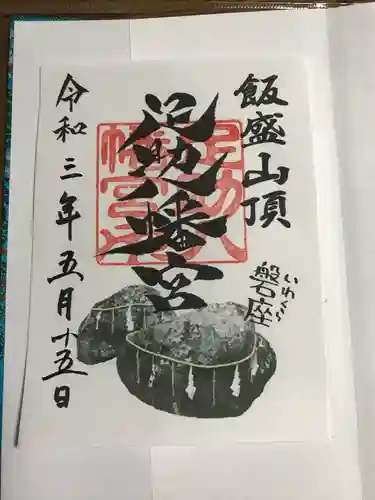 飯盛山頂
磐座
いわくら
足助八幡宮
令和三年五月十五日